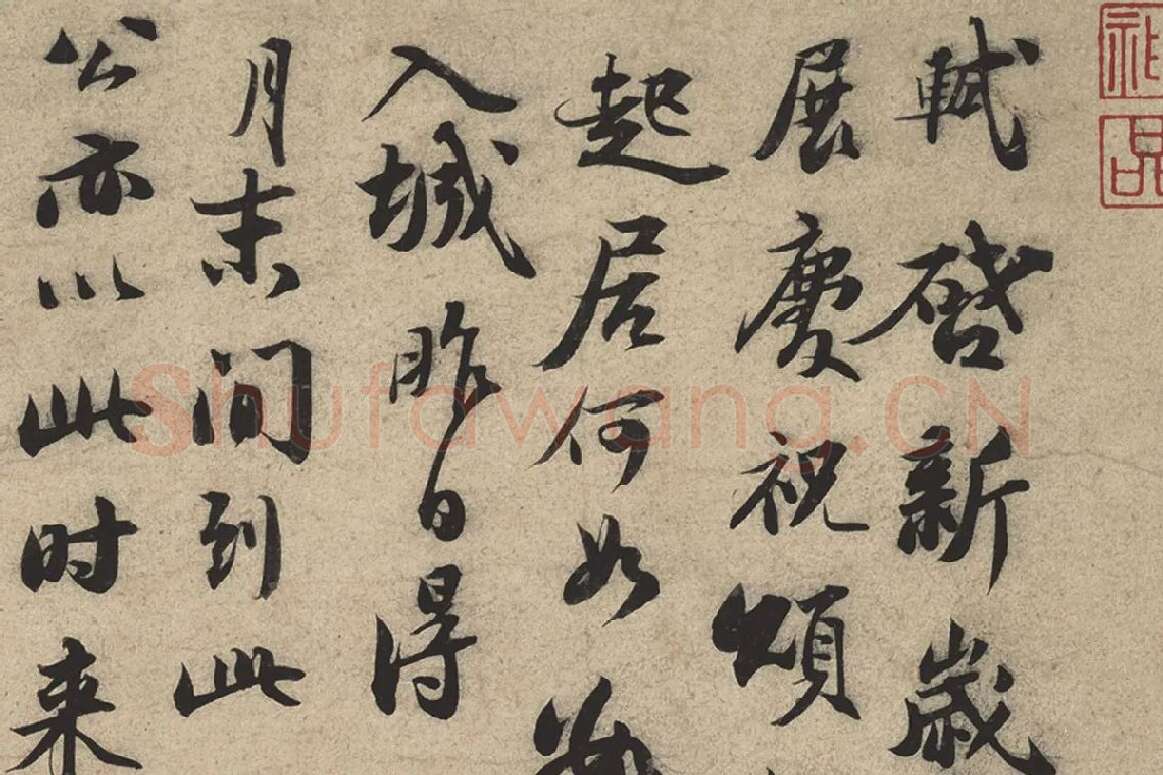 軾啓新歲
展慶祝頌
起居何如
入城昨日得
月末间到此
公亦以此时来
Shufawang.CN